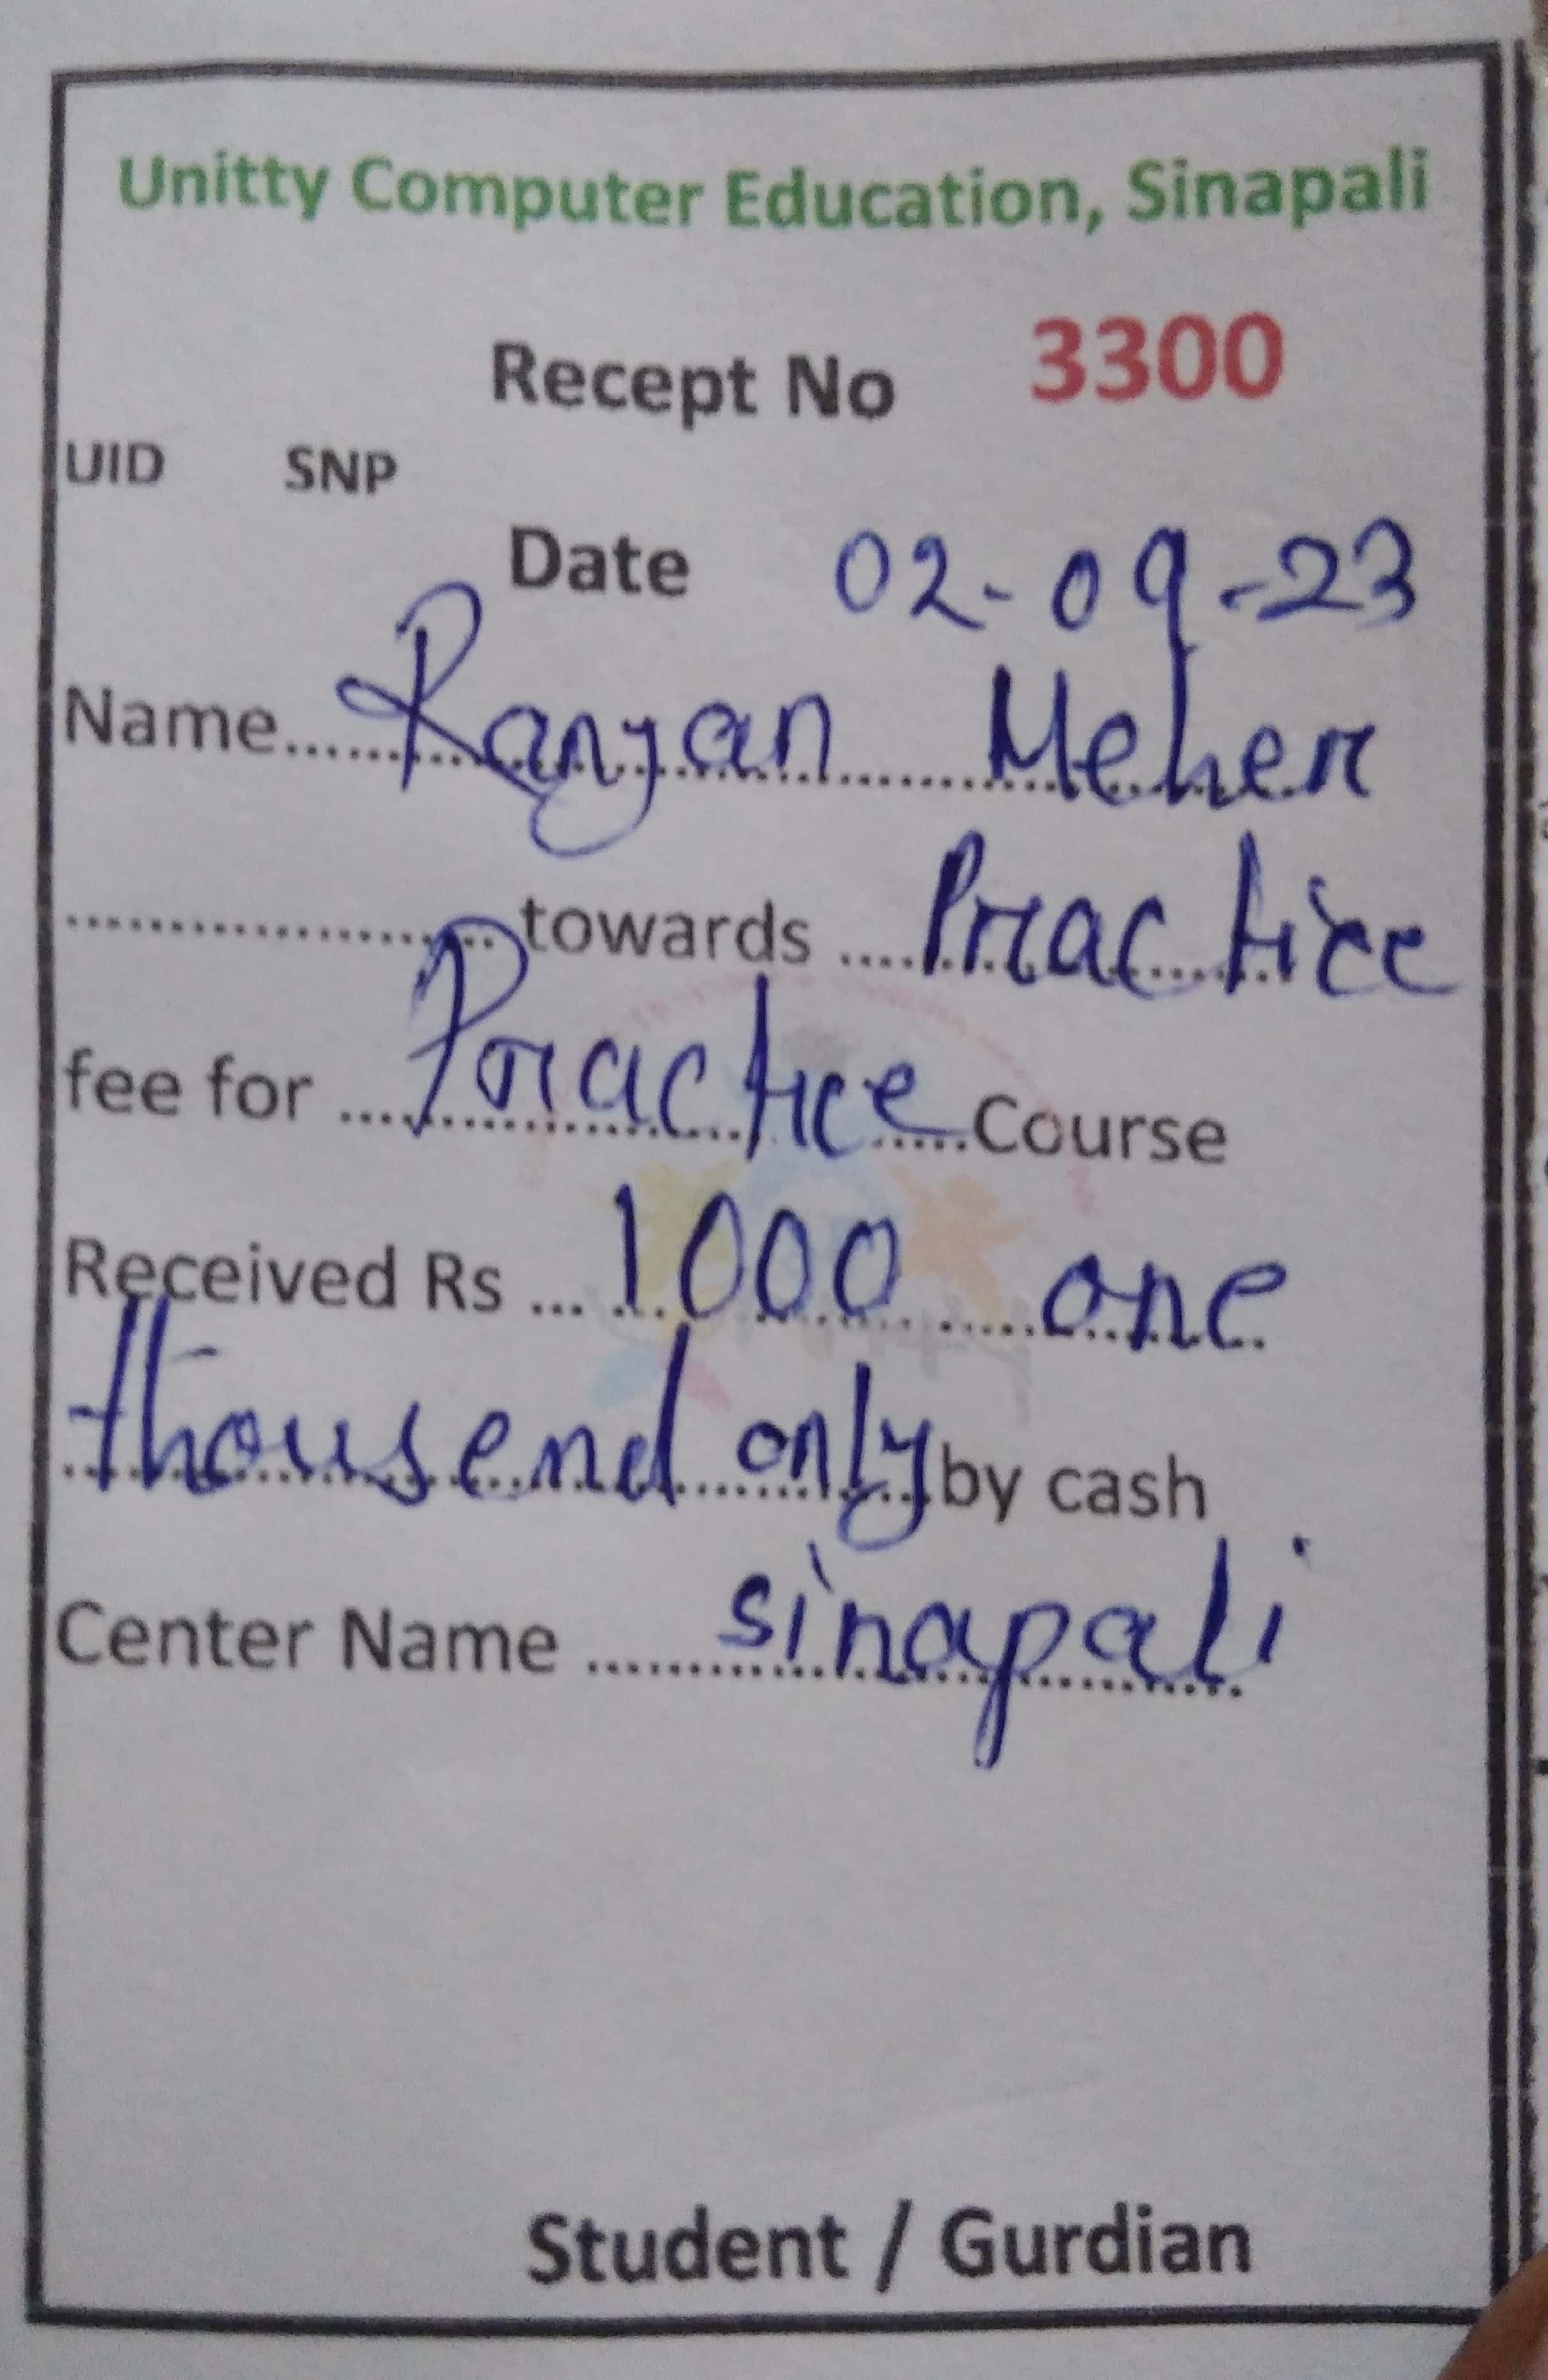 Unitty Computer Education, Sinapali
Recept No 3300
UID SNP
Date 02-09-23
Name.......Ranjan Meher
.......................towards ....Practice
fee for ....Practice......Course
Received Rs ...1000 one
thousend only by cash
Center Name ......sinapali
Student / Gurdian